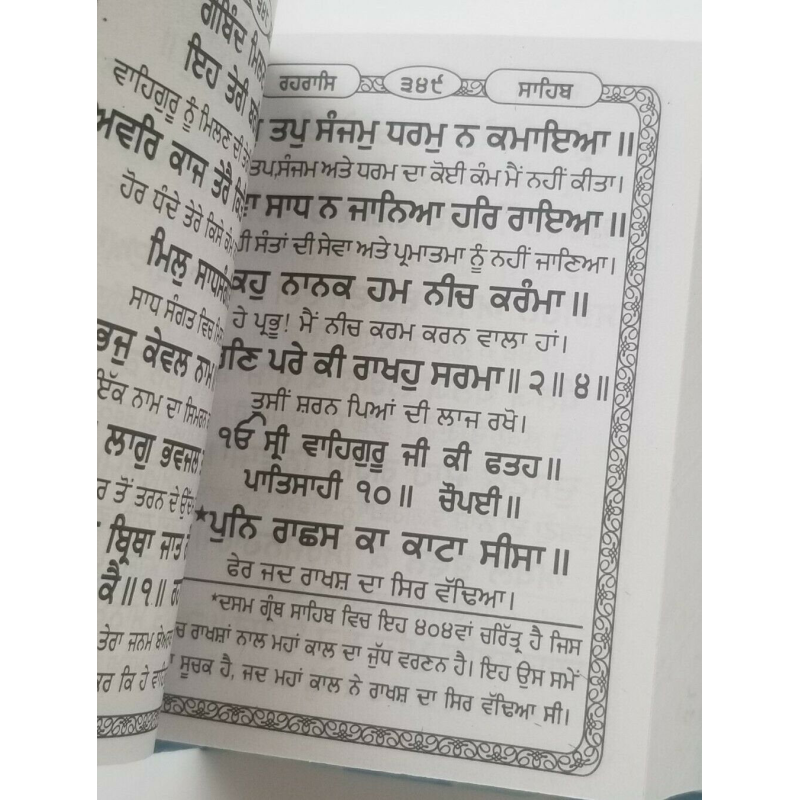 ਗੋਬਿੰਦ
ਇਹ ਤੇਰੀ
ਵਾਹਿਗੁਰੂ ਨੂੰ ਮਿਲਣ ਦੀ
ਅਵਰਿ ਕਾਜ ਤੇਰੈ
ਹੋਰ ਧੰਦੇ ਤੇਰੇ ਕਿਸੇ
ਮਿਲੁ
ਸਾਧ ਸੰਗਤ ਵਿਚ
ਭਜੁ ਕੇਵਲ ਨਾਮ
ਇੱਕ ਨਾਮ ਦਾ ਸਿਮਰਨ
ਲਾਗੁ ਭਵਜਲ
ਤੋਂ ਤਰਨ ਦੇ
ਬ੍ਰਿਥਾ ਜਾਤ
ਕੈ॥੧॥
ਤੇਰਾ ਜਨਮ
ਕਿ ਹੇ
ਰਹਰਾਸਿ ੩੪੯ ਸਾਹਿਬ
ਤਪੁ ਸੰਜਮੁ ਧਰਮੁ ਨ ਕਮਾਇਆ॥
ਤਪ,ਸੰਜਮ ਅਤੇ ਧਰਮ ਦਾ ਕੋਈ ਕੰਮ ਮੈਂ ਨਹੀਂ ਕੀਤਾ।
ਸਾਧ ਨ ਜਾਨਿਆ ਹਰਿ ਰਾਇਆ॥
ਸੰਤਾਂ ਦੀ ਸੇਵਾ ਅਤੇ ਪ੍ਰਮਾਤਮਾ ਨੂੰ ਨਹੀਂ ਜਾਣਿਆ।
ਕਹੁ ਨਾਨਕ ਹਮ ਨੀਚ ਕਰੰਮਾ॥
ਹੇ ਪ੍ਰਭੂ! ਮੈਂ ਨੀਚ ਕਰਮ ਕਰਨ ਵਾਲਾ ਹਾਂ।
ਪਰੇ ਕੀ ਰਾਖਹੁ ਸਰਮਾ॥੨॥੪॥
ਤੁਸੀਂ ਸ਼ਰਨ ਪਿਆਂ ਦੀ ਲਾਜ ਰਖੋ।
ੴ ਸ੍ਰੀ ਵਾਹਿਗੁਰੂ ਜੀ ਕੀ ਫਤਹ॥
ਪਾਤਿਸਾਹੀ ੧੦॥ ਚੌਪਈ॥
*ਪੁਨਿ ਰਾਛਸ ਕਾ ਕਾਟਾ ਸੀਸਾ॥
ਫੇਰ ਜਦ ਰਾਖਸ਼ ਦਾ ਸਿਰ ਵੱਢਿਆ।
*ਦਸਮ ਗ੍ਰੰਥ ਸਾਹਿਬ ਵਿਚ ਇਹ ੪੦੪ਵਾਂ ਚਰਿੱਤ੍ਰ ਹੈ ਜਿਸ
ਰਾਖਸ਼ਾਂ ਨਾਲ ਮਹਾਂ ਕਾਲ ਦਾ ਜੁੱਧ ਵਰਣਨ ਹੈ। ਇਹ ਉਸ ਸਮੇਂ
ਸੂਚਕ ਹੈ, ਜਦ ਮਹਾਂ ਕਾਲ ਨੇ ਰਾਖਸ਼ ਦਾ ਸਿਰ ਵੱਢਿਆ ਸੀ।